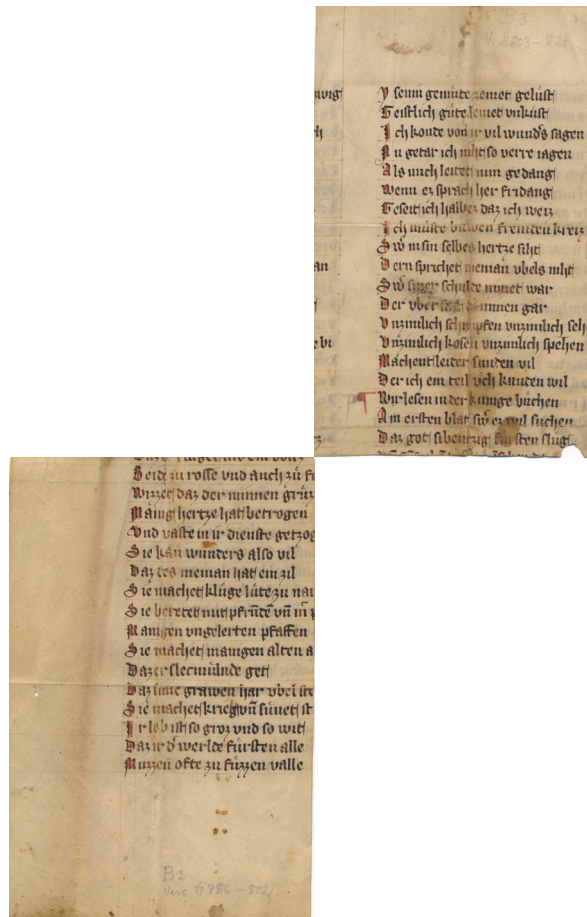 B3
V. 11803-821
wig
Geistlich güte lemet vnkust
Ich konde von ir vil wunds sagen
Nu getar ich niht so verre iagen
Als mich leitet min gedang
Wenn ez sprach her fridang
Geseit ich halbez daz ich weiz
Ich müste buwen fremden kreiz
Sw in sin selbes hertze siht
Dern sprichet nieman vbels niht
Sw siner schulde nimet war
Der vber minen gar
an
Vnzimlich schimpfen vnzimlich seh
Vnzimlich kosen vnzimlich spehen
e bi
Machent leider sunden vil
Der ich ein teil vch kunden wil
Wir lesen in der kunige büchen
Am ersten blat sw ez wil suchen
Daz got sibentzig fürsten slüg
Beide zu rosse vnd auch zü f
Wizzet daz der minnen grüz
Manig hertze hat betrogen
Vnd vaste in ir dienste getzog
Sie kan wunders also vil
Daz des nieman hat ein zil
Sie machet klüge lüte zu nar
Sie beretet mit pfrüde vn m p
Manigen vngelerten pfaffen
Sie machet manigen alten a
Daz er slec münde get
Daz sine grawen har vbel ste
Sie machet krieg vn sünet st
Ir lob ist so groz vnd so wit
Daz ir d werlde fürsten alle
Muzzen ofte zu füzzen valle
B2
Vers 11786-802